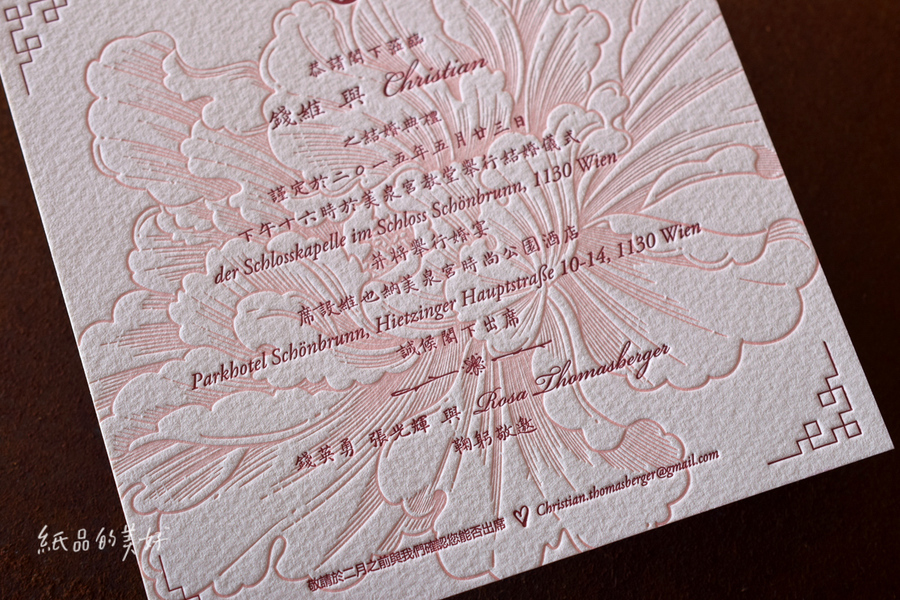 恭請閣下蒞臨
錢維 與 Christian
之結婚典禮
謹定於二〇一五年五月廿三日
下午十六時於美泉宮教堂舉行結婚儀式
der Schlosskapelle im Schloss Schönbrunn, 1130 Wien
并将舉行婚宴
席設維也納美泉宮時尚公園酒店
Parkhotel Schönbrunn, Hietzinger Hauptstraße 10-14, 1130 Wien
誠候閣下出席
錢英勇 張光輝 與 Rosa Thomasberger
鞠躬敬邀
敬請於二月之前與我們確認您能否出席 ♡ Christian.thomasberger@gmail.com
紙品的美好